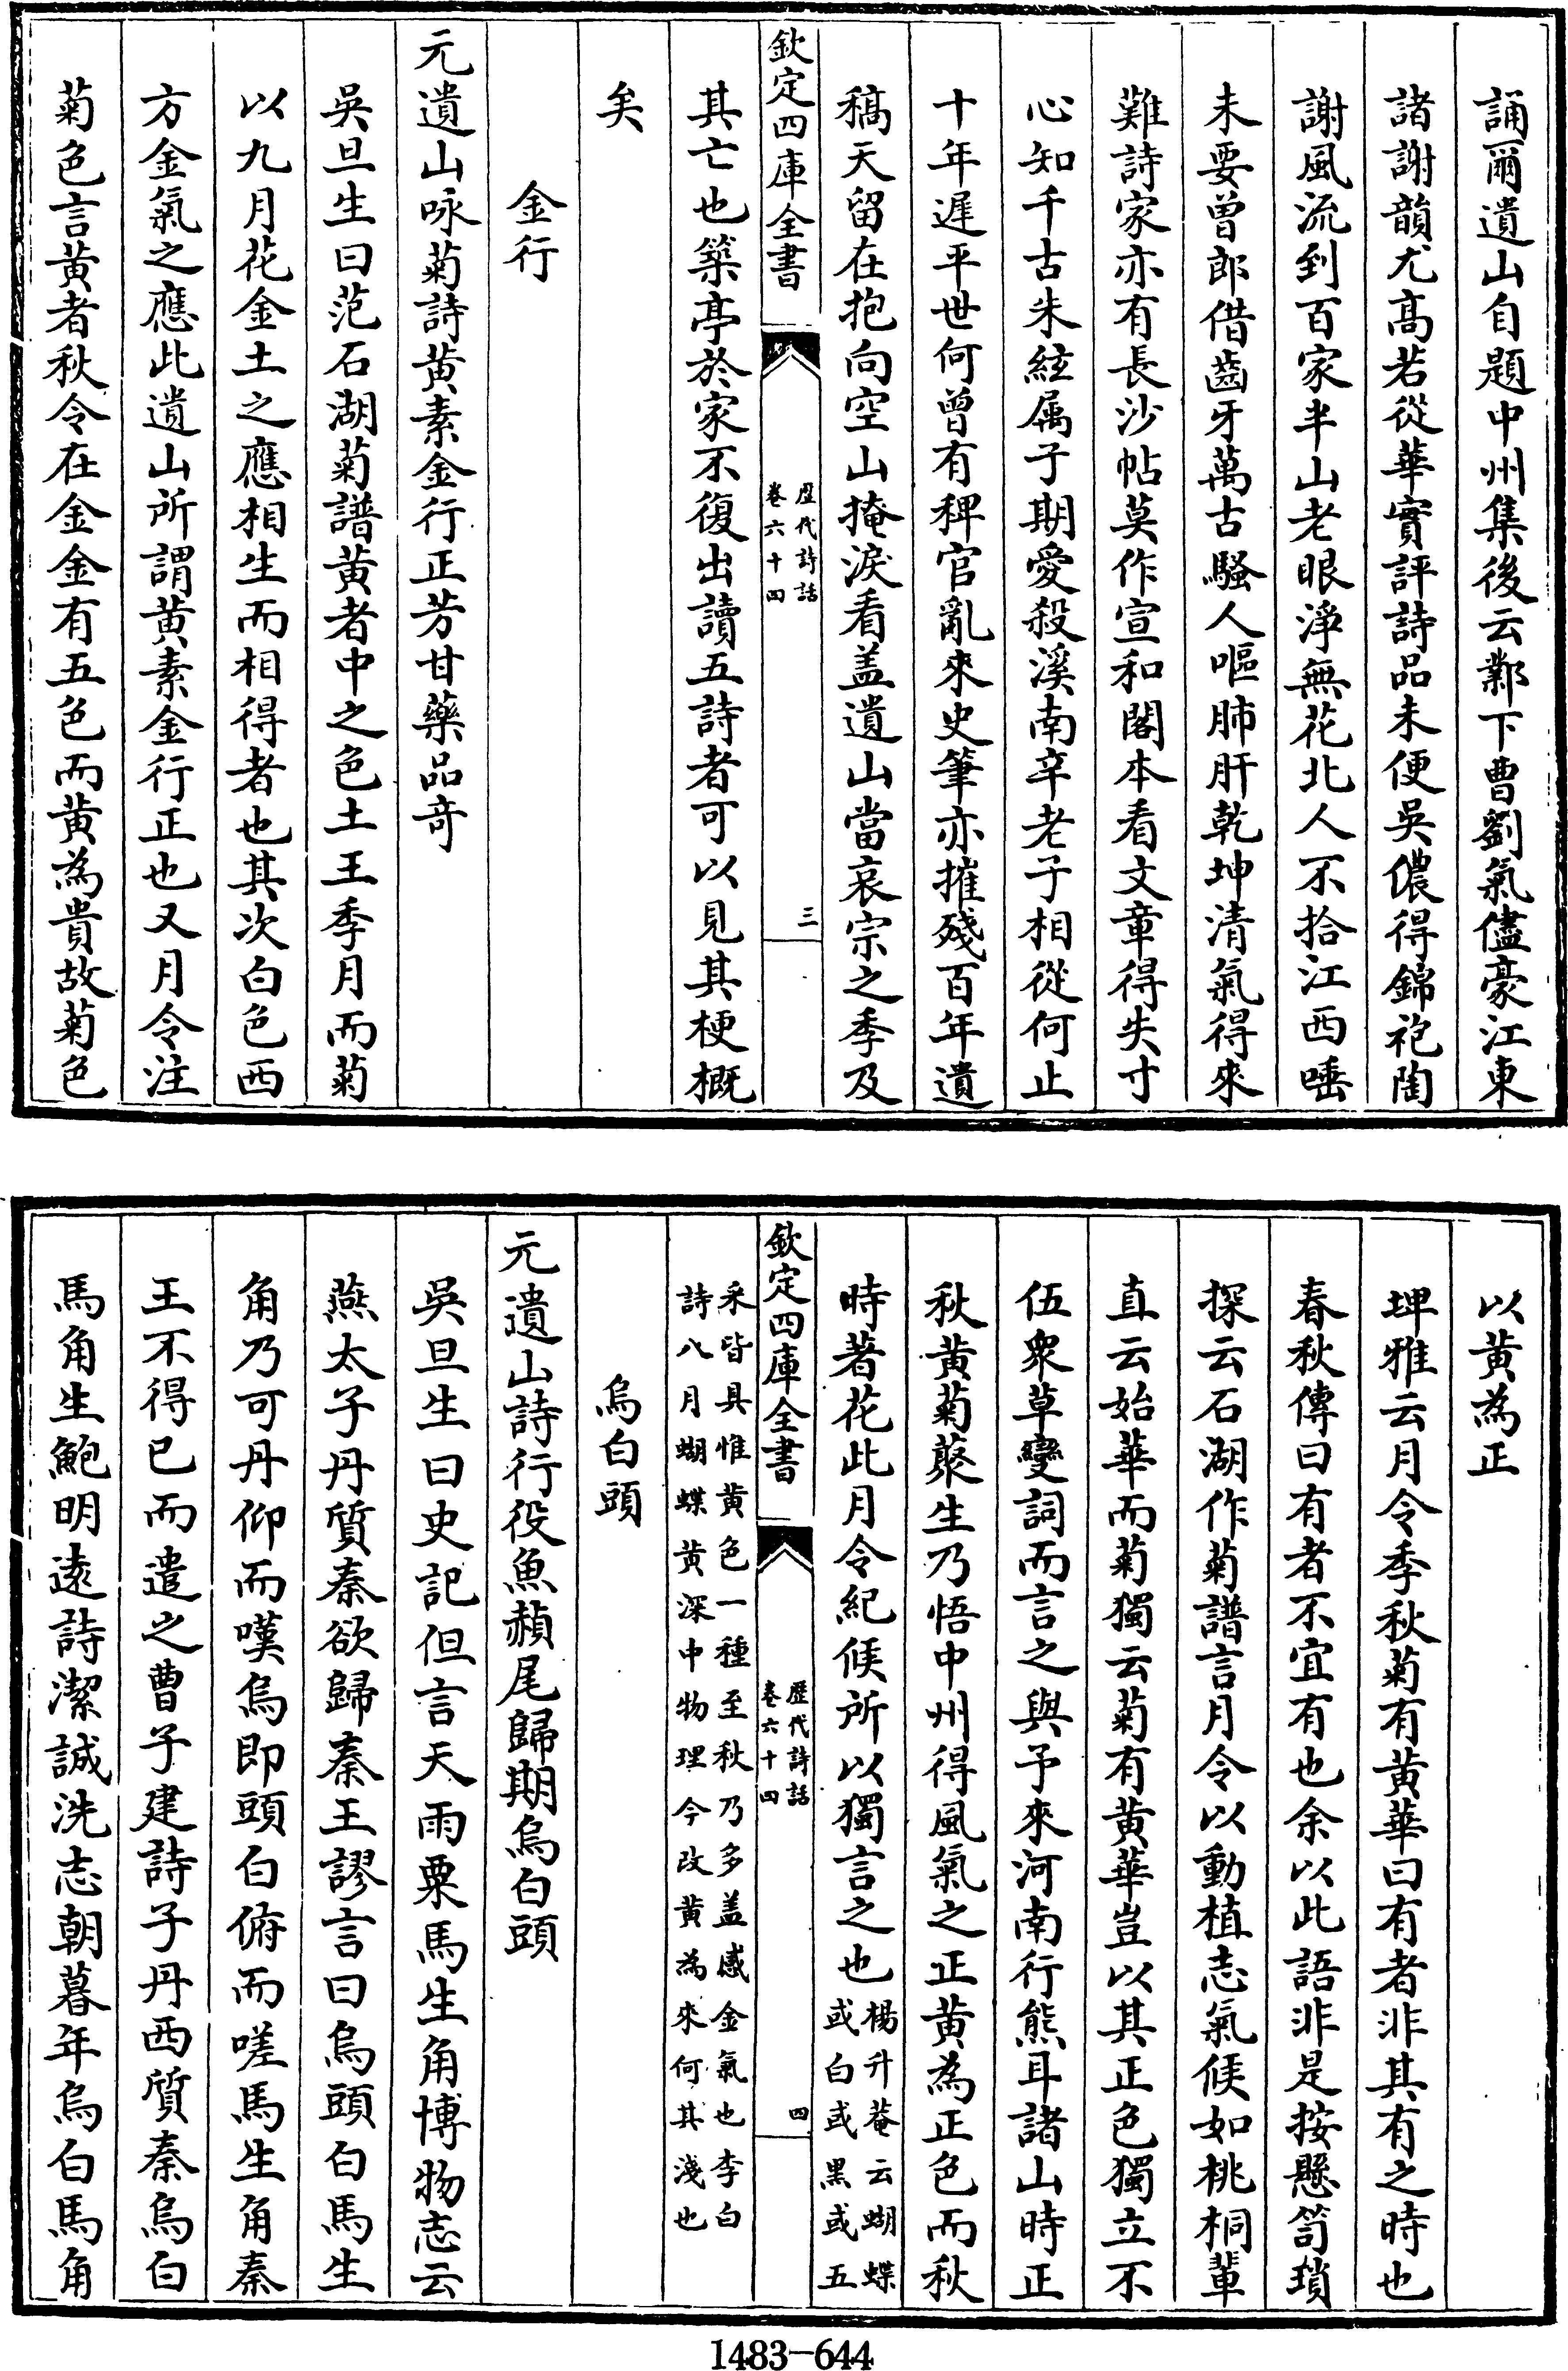 誦爾遺山自題中州集後云鄴下曹劉氣儘豪江東
諸謝韻尤髙若從華實評詩品未便吳儂得錦袍陶
謝風流到百家半山老眼淨無花北人不拾江西唾
未要曾郎借齒牙萬古騷人嘔肺肝乾坤清氣得來
難詩家亦有長沙帖莫作宣和閣本看文章得失寸
心知千古朱絃属子期愛殺溪南辛老子相從何止
十年遲平世何曾有稗官亂來史筆亦摧殘百年遺
稿天留在抱向空山掩淚看盖遺山當哀宗之季及
欽定四庫全書
歴代詩話
卷六十四
三
其亡也築亭於家不復出讀五詩者可以見其梗概
矣
金行
元遺山咏菊詩黄素金行正芳甘藥品竒
吳旦生曰范石湖菊譜黄者中之色土王季月而菊
以九月花金土之應相生而相得者也其次白色西
方金氣之應此遺山所謂黄素金行正也又月令注
菊色言黄者秋令在金金有五色而黄為貴故菊色
以黄為正
埤雅云月令季秋菊有黄華曰有者非其有之時也
春秋傳曰有者不宜有也余以此語非是按懸笥瑣
探云石湖作菊譜言月令以動植志氣候如桃桐輩
直云始華而菊獨云菊有黄華豈以其正色獨立不
伍衆草變詞而言之與予來河南行熊耳諸山時正
秋黄菊藂生乃悟中州得風氣之正黄為正色而秋
時著花此月令紀候所以獨言之也楊升菴云蝴蝶
或白或黑或五
欽定四庫全書
歴代詩話
卷六十四
四
采皆具惟黄色一種至秋乃多盖感金氣也李白
詩八月蝴蝶黄深中物理今改黄為來何其淺也
烏白頭
元遺山詩行役魚赬尾歸期烏白頭
吳旦生曰史記但言天雨粟馬生角博物志云
燕太子丹質秦欲歸秦王謬言曰烏頭白馬生
角乃可丹仰而嘆烏即頭白俯而嗟馬生角秦
王不得已而遣之曹子建詩子丹西質秦烏白
馬角生鮑明遠詩潔誠洗志朝暮年烏白馬角
1483-644